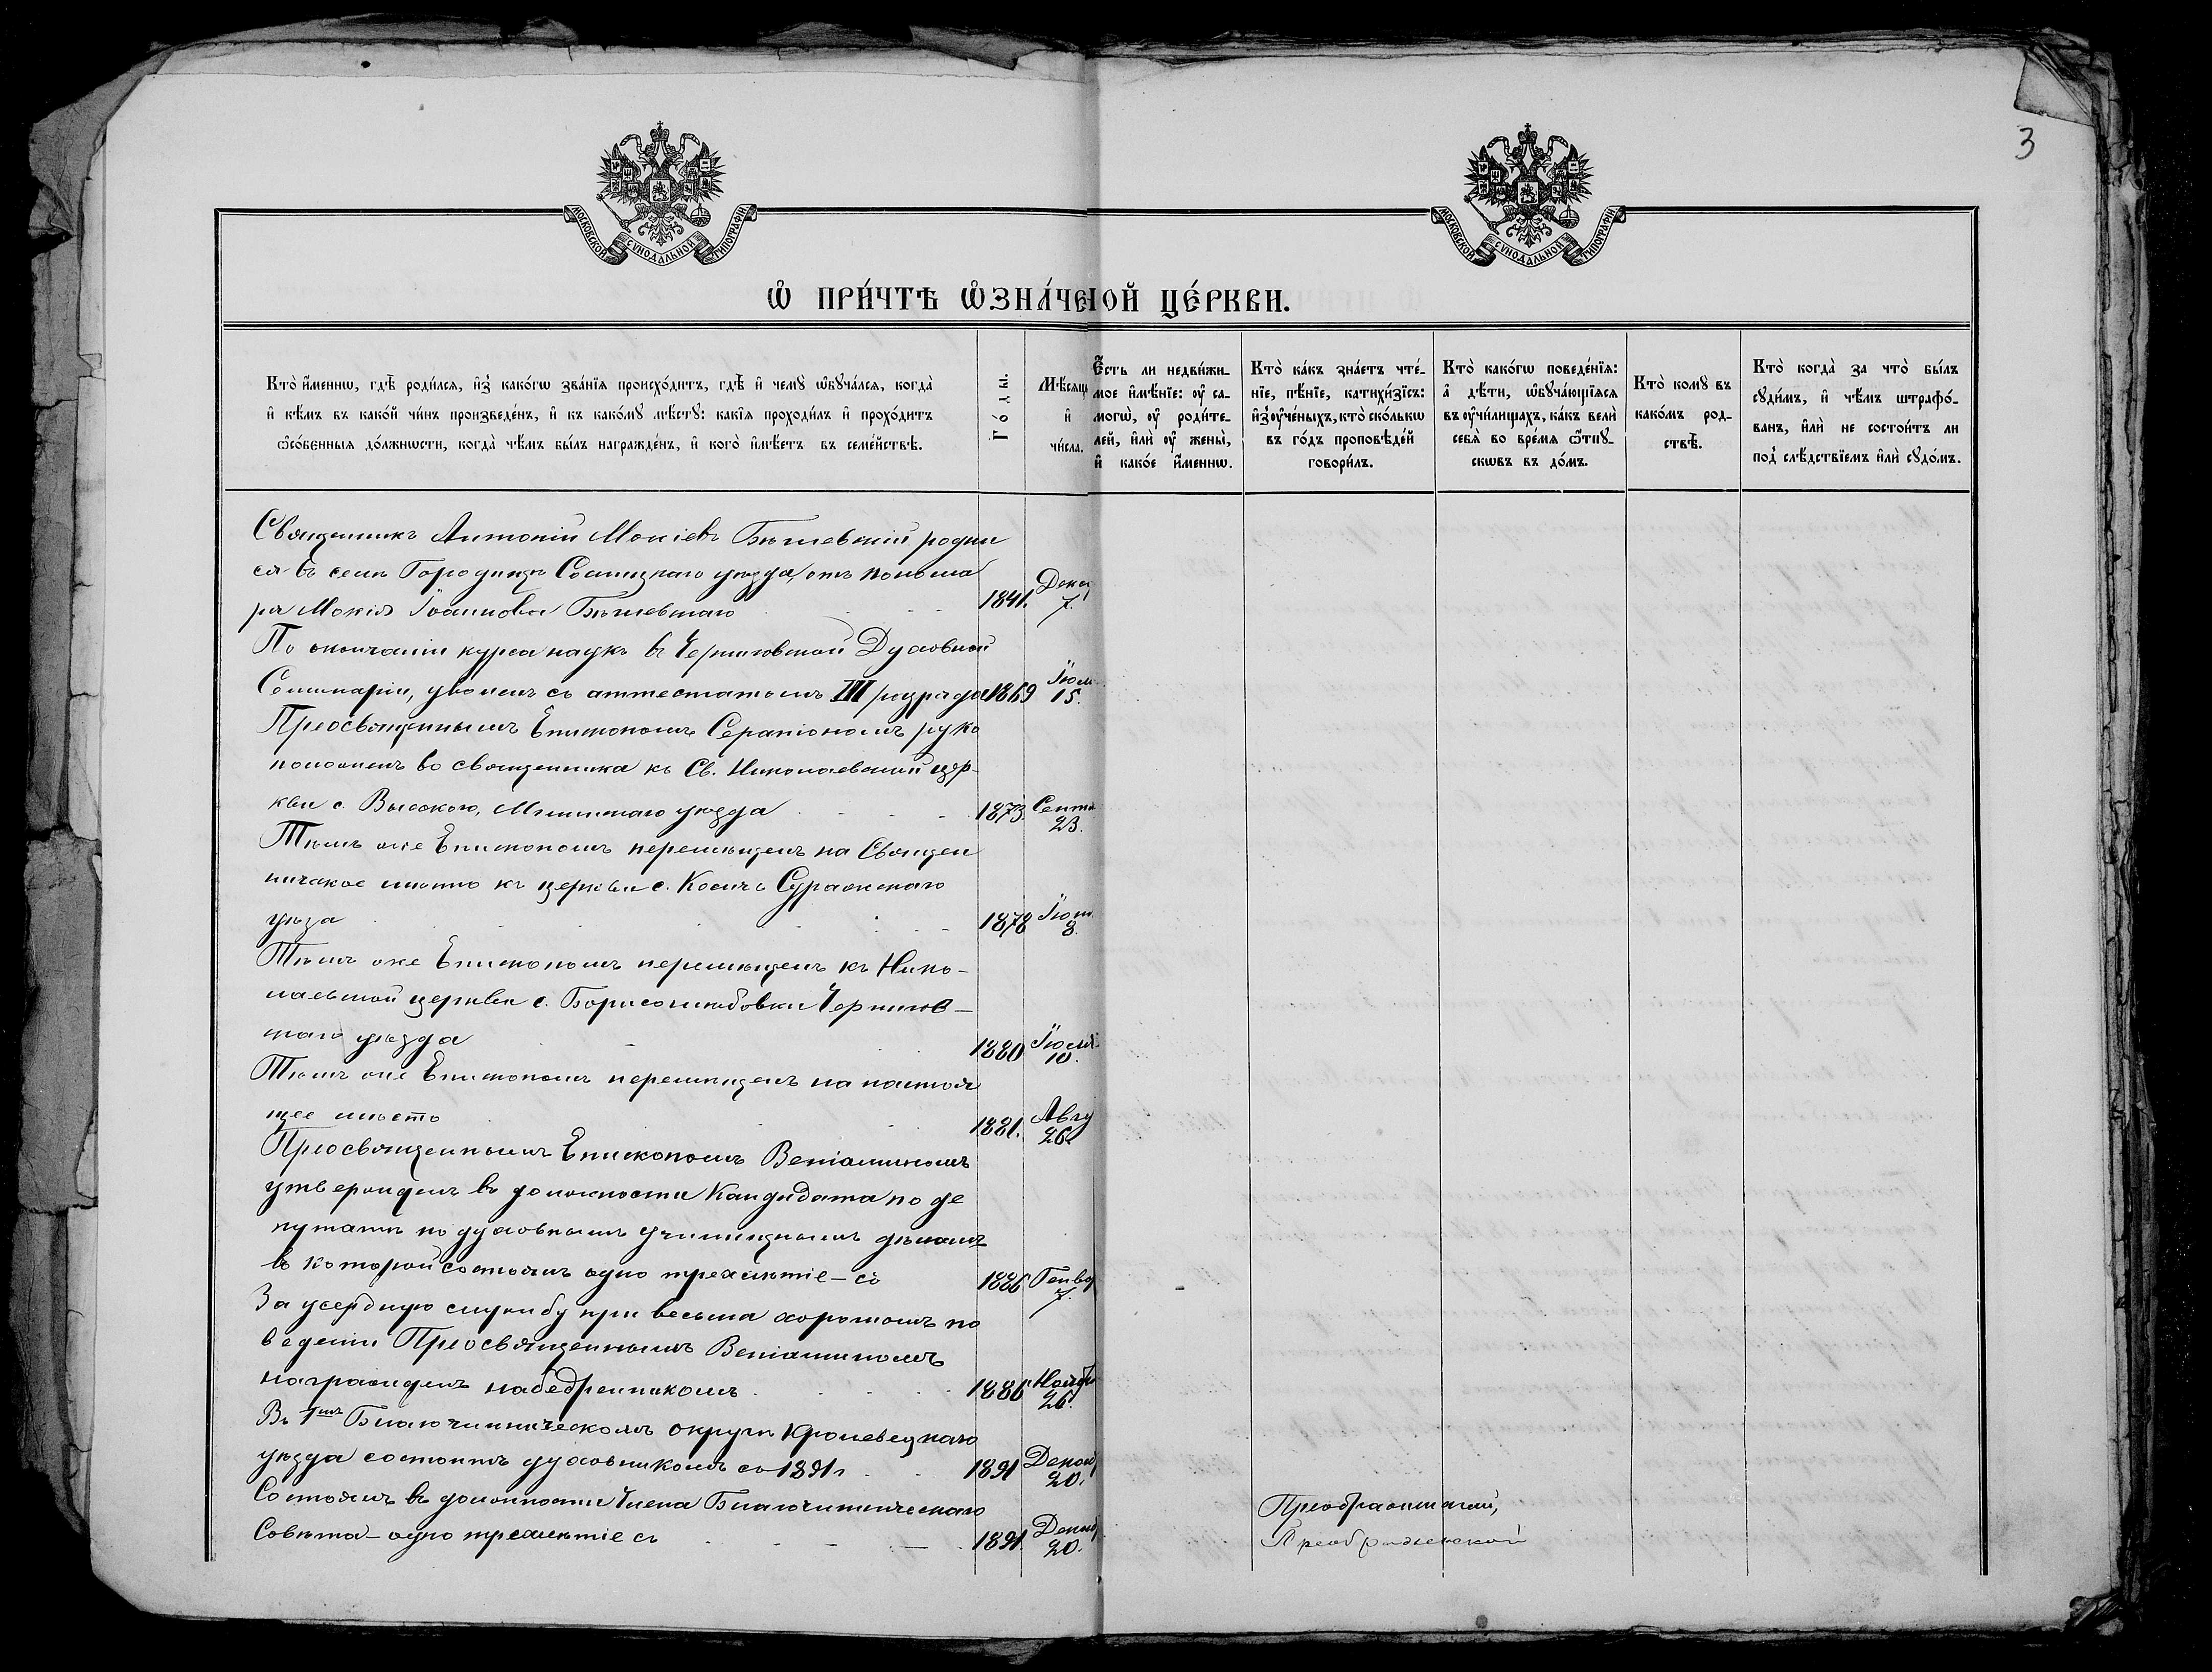 3
МОСКОВСКОЙ СѴНОДАЛЬНОЙ ТИПОГРАФІИ
МОСКОВСКОЙ СѴНОДАЛЬНОЙ ТИПОГРАФІИ
Ѡ҆ ПРИ́ЧТѢ Ѡ҆ЗНА́ЧЕНОЙ ЦЕ́РКВИ.
Кто̀ и҆́меннѡ, гдѣ̀ роди́лсѧ, и҆з̾ како́гѡ зва́нїѧ происхо́дитъ, гдѣ̀ и҆ чемꙋ̀ ѡ҆бꙋча́лсѧ, когда̀
и҆ кѣ́мъ въ како́й чи́нъ произведе́нъ, и҆ къ како́мꙋ мѣ́стꙋ: какі̑ѧ проходи́лъ и҆ прохо́дитъ
ѻ҆со́бенныѧ до́лжнѡсти, когда̀ чѣ́мъ бы́лъ награжде́нъ, и҆ кого̀ и҆мѣ́етъ въ семе́йствѣ.
Го́ды.
Мѣ́сѧц
и҆
чи́сла.
Є҆́сть ли недви́жи-
мое и҆мѣ́нїе: ᲂу҆ са-
могѡ̀, ᲂу҆ роди́те-
лей, и҆лѝ ᲂу҆ жены̀,
и҆ како́е и҆́меннѡ.
Кто̀ ка́къ зна́етъ чте́-
нїе, пѣ́нїе, катихи́зїсъ:
и҆з̾ᲂу҆че́ныхъ, кто̀ ско́лькѡ
въ го́дъ проповѣ́дей
говори́лъ.
Кто̀ како́гѡ поведе́нїѧ:
а҆ дѣ́ти, ѡ҆бꙋча́ющїѧсѧ
въ ᲂу҆чи́лищахъ, ка́къ велѝ
себѧ̀ во вре́мѧ ѿпꙋ-
скѡвъ въ до́мъ.
Кто̀ комꙋ̀ въ
како́мъ род-
ствѣ̀.
Кто̀ когда̀ за что̀ бы́лъ
сꙋди́мъ, и҆ чѣ́мъ штрафо́-
ванъ, и҆лѝ не состои́тъ ли
под̾ слѣ́дствїемъ и҆лѝ сꙋдо́мъ.
Священникъ Антоній Мокіевъ родил
ся въ селѣ Городищѣ Сосницкаго уѣзда, отъ понома
ря Мокія Іоаннова 1841. Декаб 7.
По окончаніи курса наукъ въ Черниговской Духовной
Семинаріи, уволенъ съ аттестатомъ III разряда 1869 Іюл 15.
Преосвященнымъ Епископомъ Серапіономъ руко
положенъ во священника къ Св. Николаевской цер-
кви с. Высокого, Мглинскаго уѣзда 1873 Сентя 23.
Тѣмъ же Епископомъ перемѣщенъ на Священ
ническое мѣсто къ церкви с. Косичъ Суражскаго
уѣзда 1878 8.
Тѣмъ же Епископомъ перемѣщенъ къ Нико-
лаевской церкви с. Борисоглѣбовки Чернигов-
скаго уѣзда 1880 Іюля 10.
Тѣмъ же Епископомъ перемѣщенъ на настоя
щее мѣсто 1881. Авгу 26.
Преосвященнымъ Епископомъ Веніаминомъ
утвержденъ въ должности Кандидата по де
путатѣ по духовнымъ училищнымъ дѣламъ
въ которой состоялъ одно трехлѣтіе – съ 1886 Генва 7.
За усердную службу при весьма хорошомъ по
веденіи Преосвященнымъ Веніаминомъ
награжденъ набедренникомъ 1886 Нояб 26.
Въ 1мъ Благочинническомъ округѣ Кролевецкаго
уѣзда состоитъ духовникомъ съ 1891 г. 1891 Декаб 20.
Состоялъ въ должности Члена Благочинническаго
Совѣта – одно трехлѣтіе съ 1891 Декаб 20.
Преображенской,
Преображенской